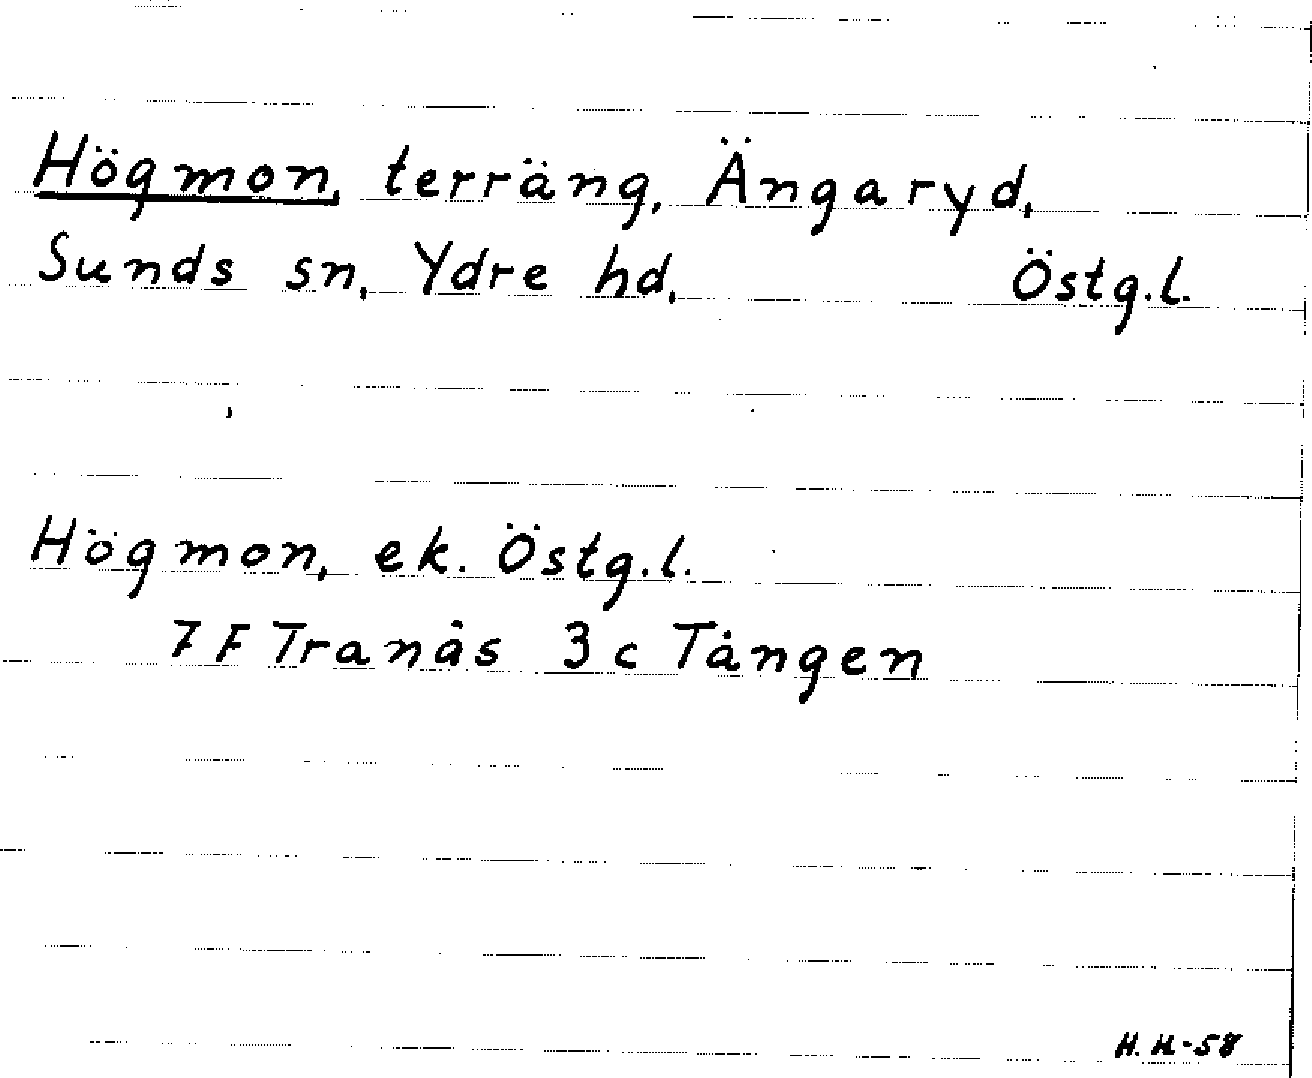 Högmon, terräng, Ängaryd,
Sunds sn, Ydre hd, Östg.l.
Högmon, ek. Östg.l.
7 F Tranås 3 c Tången
H. H-58